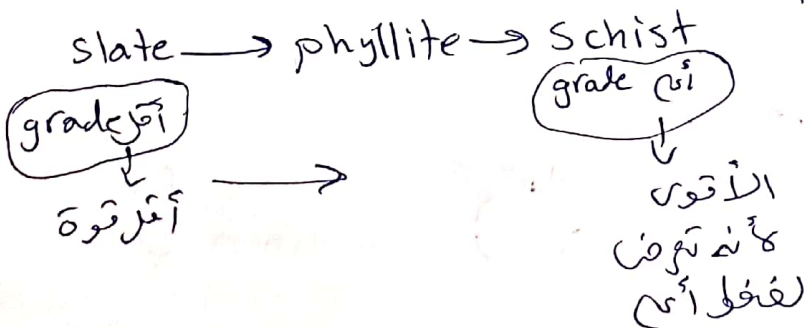 slate → phyllite → Schist
أقل grade
أعلى grade
أقل قوة →
الأقوى
لأنه تعرض
لضغط أعلى